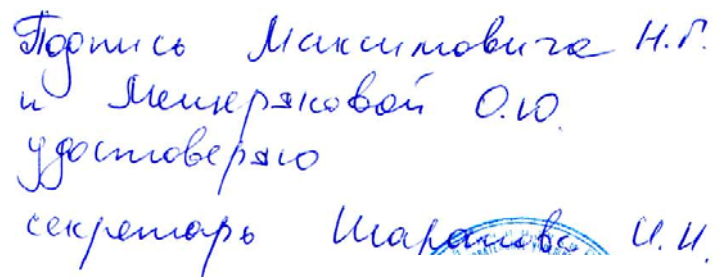 Подпись Максимовича Н.Г.
и Мещеряковой О.Ю.
удостоверяю
секретарь Шарапова И.И.